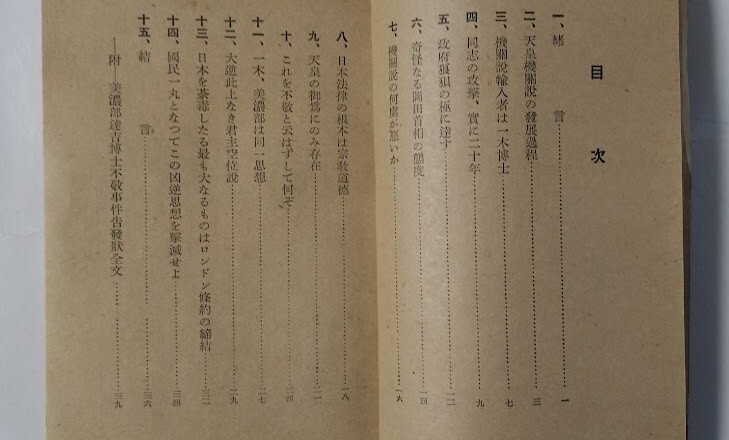 目次
一、緒言……一
二、天皇機關說の發展過程……三
三、機關說輸入者は一木博士……七
四、同志の攻擊、實に二十年……九
五、政府狼狽の極に達す……一二
六、奇怪なる岡田首相の態度……一四
七、機關說の何處が惡いか……一六
八、日本法律の根本は宗敎道德……一八
九、天皇の御爲にのみ存在……二一
十、これを不敬と云はずして何ぞ……二四
十一、一木、美濃部は同一思想……二七
十二、大逆此上なき君主空位說……二九
十三、日本を茶毒したる最も大なるものはロンドン條約の締結……三二
十四、國民一丸となつてこの凶逆思想を擊滅せよ……三四
十五、結言……三六
――附――美濃部達吉博士不敬事件告發狀全文……三九